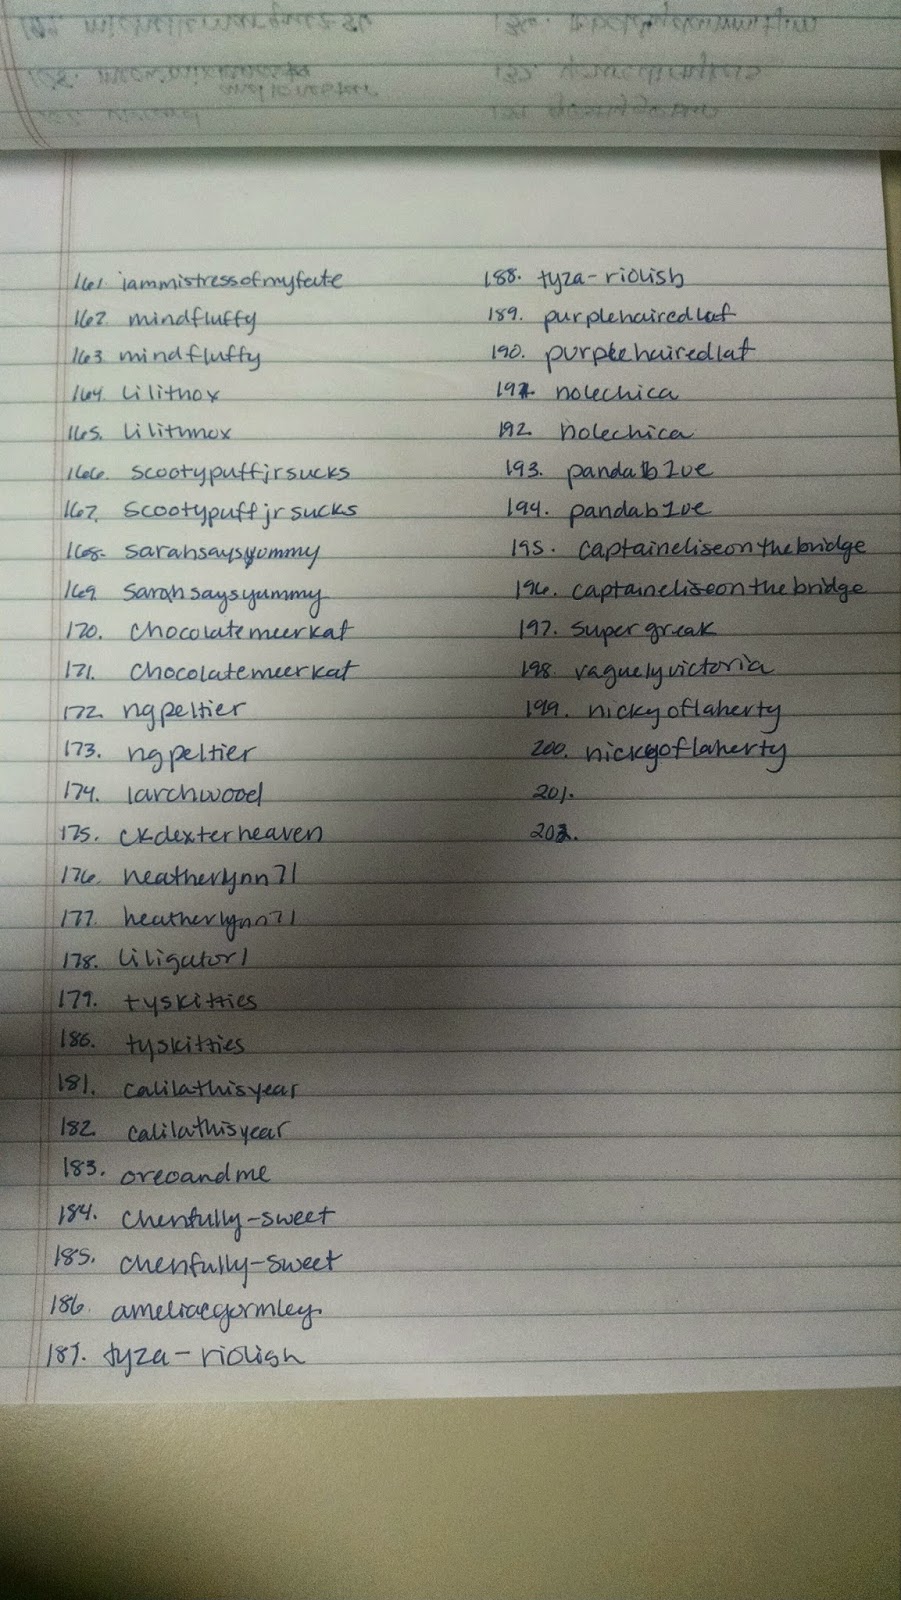 161. iammistressofmyfate
162. mindfluffy
163. mindfluffy
164. lilithox
165. lilithnox
166. scootypuffjrsucks
167. scootypuffjrsucks
168. sarahsaysyummy
169. sarahsaysyummy
170. chocolatemeerkat
171. chocolatemeerkat
172. ngpeltier
173. ngpeltier
174. larchwood
175. ckdexterheaven
176. heatherlynn71
177. heatherlynn71
178. liligator1
179. tyskitties
180. tyskitties
181. calilathisyear
182. calilathisyear
183. oreoandme
184. chenfully-sweet
185. chenfully-sweet
186. ameliacgormley
187. tyza-riolish
188. tyza-riolish
189. purplehairedlaf
190. purplehairedlaf
191. nolechica
192. nolechica
193. pandab1ue
194. pandab1ue
195. captaineliseonthebridge
196. captaineliseonthebridge
197. supergreak
198. vaguelyvictoria
199. nickyoflaherty
200. nickyoflaherty
201.
202.